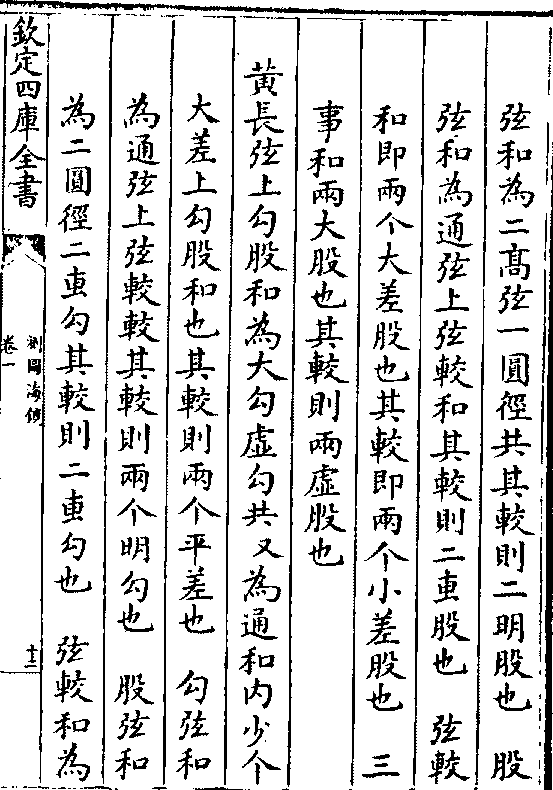 弦和為二髙弦一圓徑共其較則二明股也　股
弦和為通弦上弦較和其較則二叀股也　弦較
和即兩个大差股也其較即兩个小差股也　三
事和兩大股也其較則兩虚股也
黄長弦上勾股和為大勾虚勾共又為通和内少个
大差上勾股和也其較則兩个平差也　勾弦和
為通弦上弦較較其較則兩个明勾也　股弦和
為二圓徑二叀勾其較則二叀勾也　弦較和為
欽定四庫全書
測圓海鏡
卷一
十三